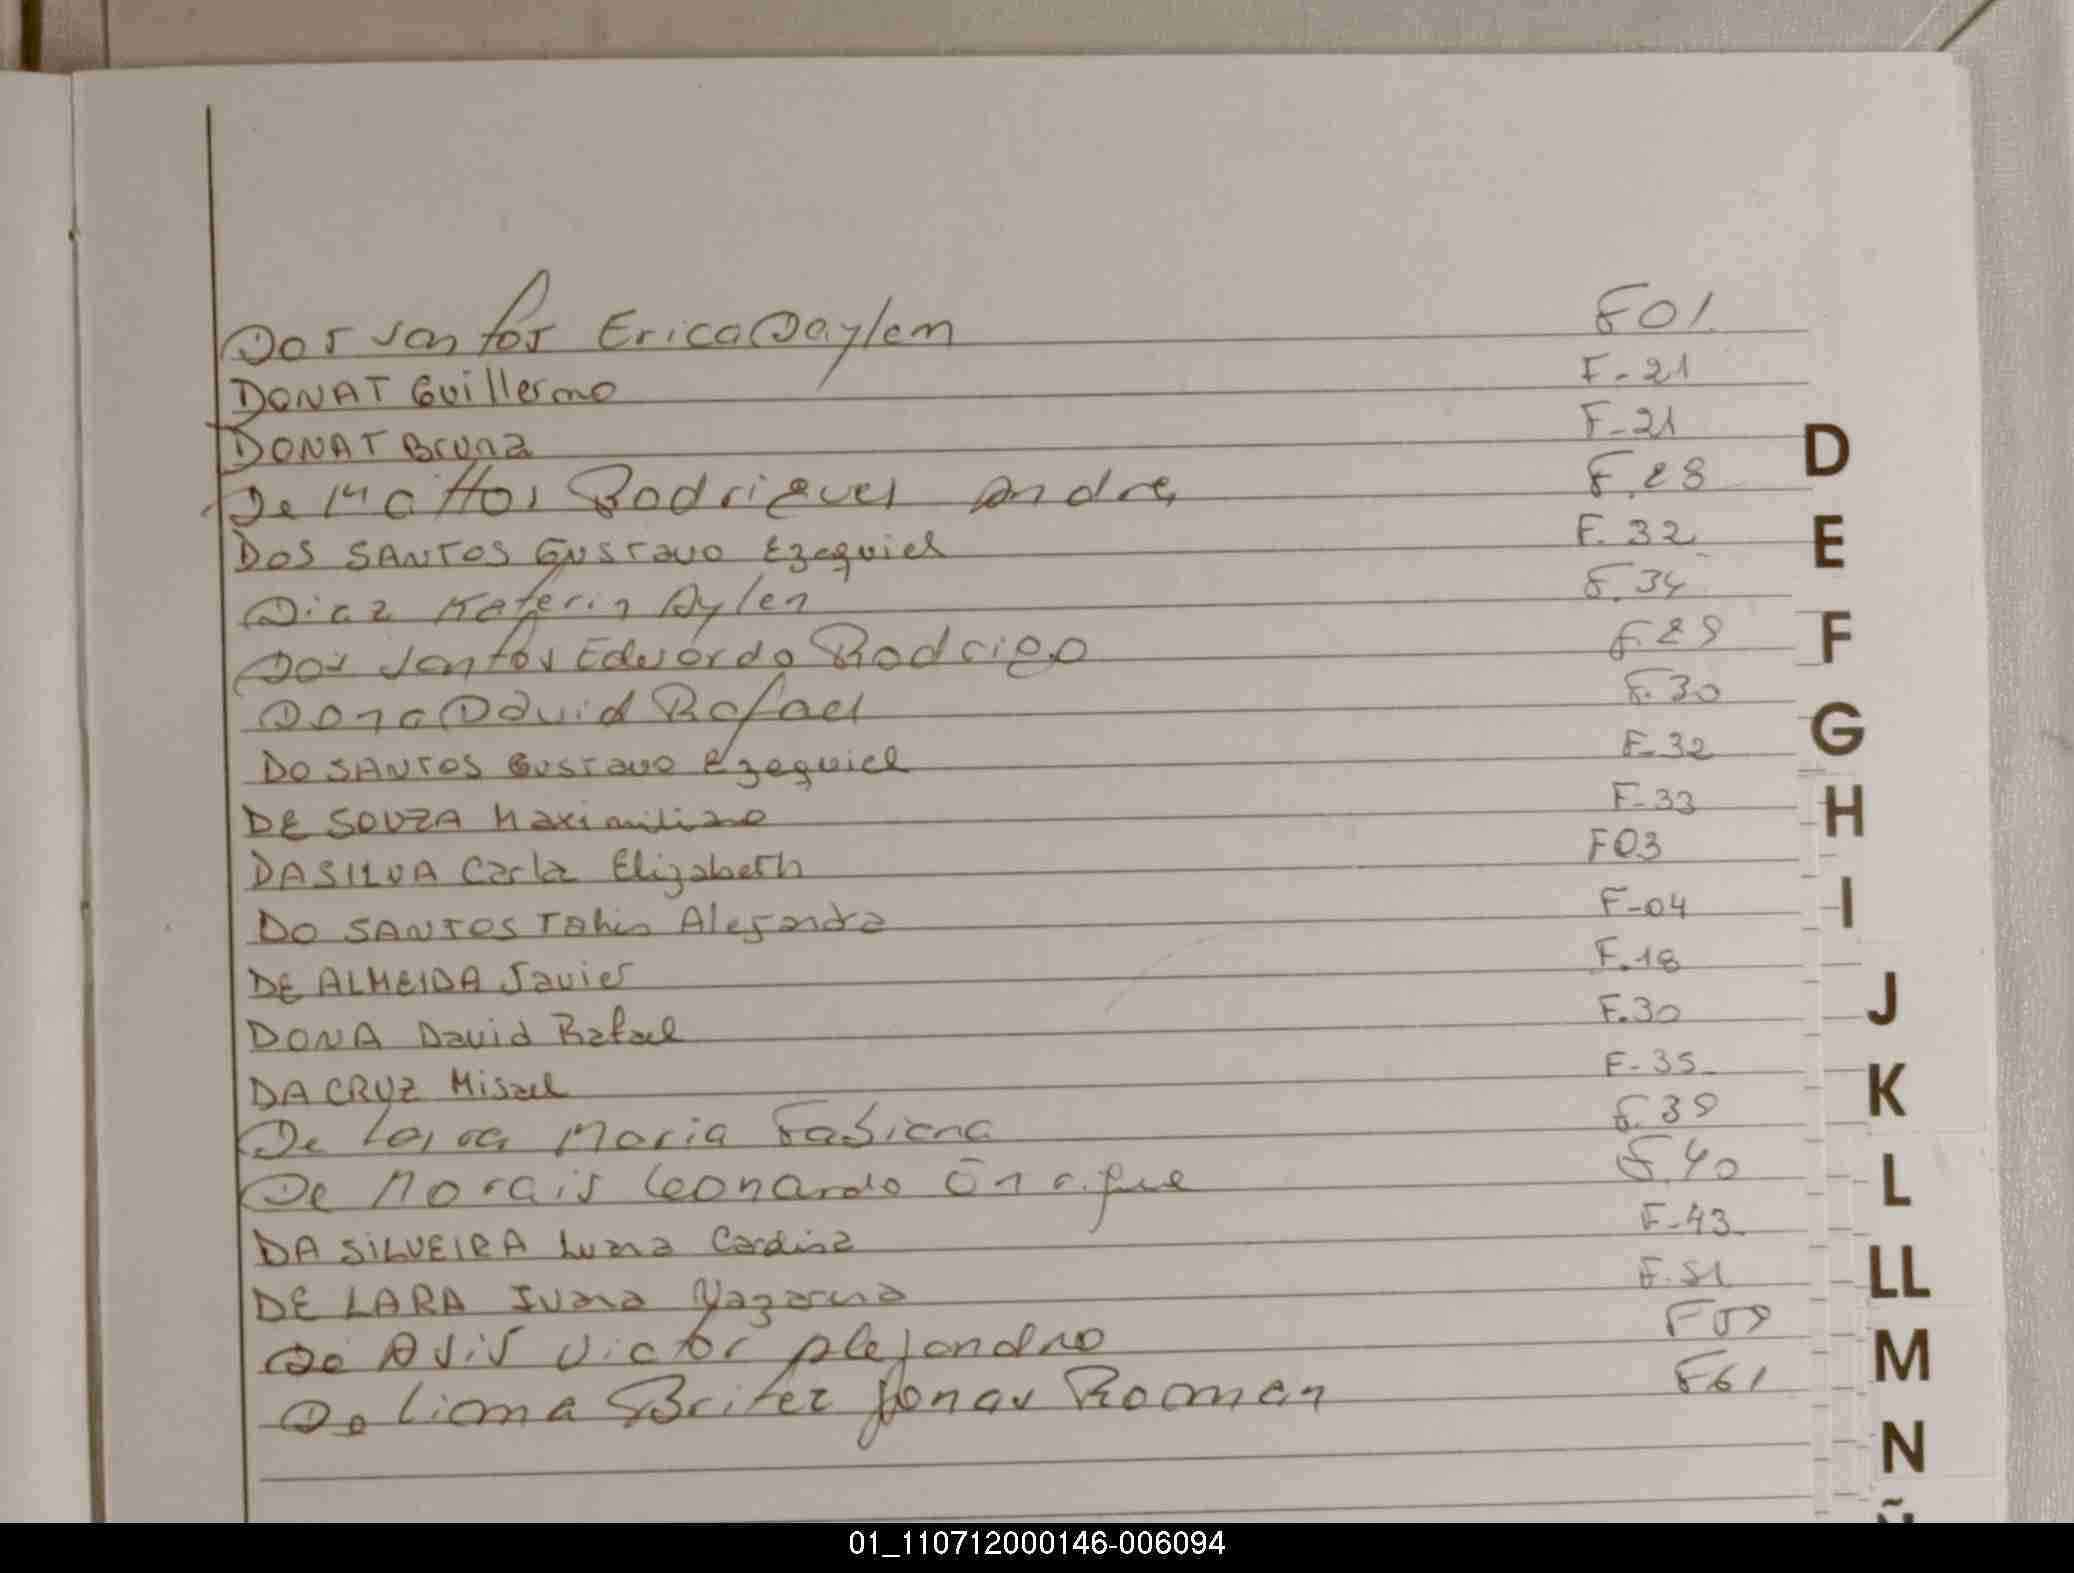 Dos Santos Erica Daylem F01
DONAT Guillermo F-21
DONAT Bruna F-21
De Mattos Rodriguez Andre F.28
DOS SANTOS Gustavo Ezequiel F.32
Diaz Katerin Aylen F.34
Dos Santos Eduardo Rodrigo F.29
Dona David Rafael F.30
DO SANTOS Gustavo Ezequiel F-32
DE SOUZA Maximiliano F-33
DA SILVA Carla Elizabeth F03
DO SANTOS Alejandra F-04
DE ALMEIDA Javier F.18
DONA David Rafael F.30
DA CRUZ Misael F-35
De Maria Fabiana F.39
De Morais Leonardo F.40
DA SILVEIRA Luana F-43
DE LARA Ivana F.51
De Asis Victor Alejandro F59
De Lioma Britez Jonas Roman F61
D
E
F
G
H
I
J
K
L
LL
M
N
Ñ
01_110712000146-006094